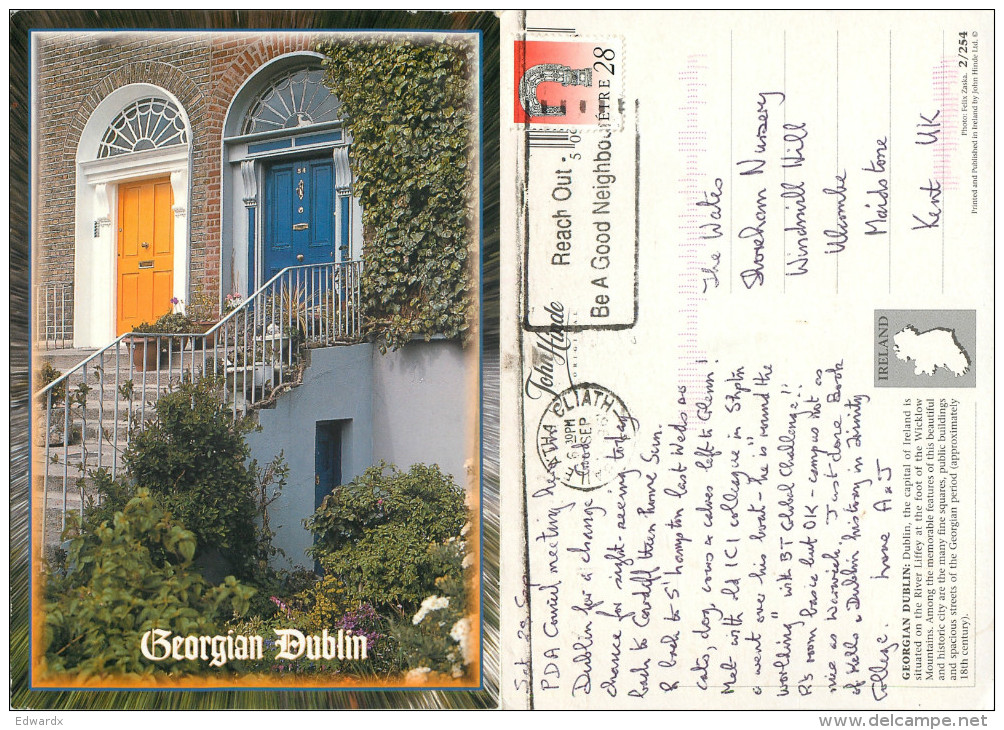 54
Georgian Dublin
Edwardx
Sat 28 Sep
PDA Council meeting here in
Dublin for a change
chance for sight-seeing today
back to Cardiff then Rome Sun.
R back to S'hampton last Weds as
cats, dog, cows & calves left to Glenn!
Met with old ICI colleague in S'hptn
& went over his boat - he is "round the
worlding" with BT Global Challenge!!
R's room basic but OK - campus not as
nice as Warwick. Just done Book
of Kells & Dublin history in Trinity
College. Love A & J
GEORGIAN DUBLIN: Dublin, the capital of Ireland is
situated on the River Liffey at the foot of the Wicklow
Mountains. Among the memorable features of this beautiful
and historic city are the many fine squares, public buildings
and spacious streets of the Georgian period (approximately
18th century).
John Hinde
ORIGINAL
IRELAND
ÉIRE 28
ATHA CLIATH
Reach Out -
Be A Good Neighbour
The Wates
Shoreham Nursery
Windmill Hill
Ulcombe
Maidstone
Kent UK
Photo: Felix Zaska. 2/254
Printed and Published in Ireland by John Hinde Ltd. ©
www.delcampe.net